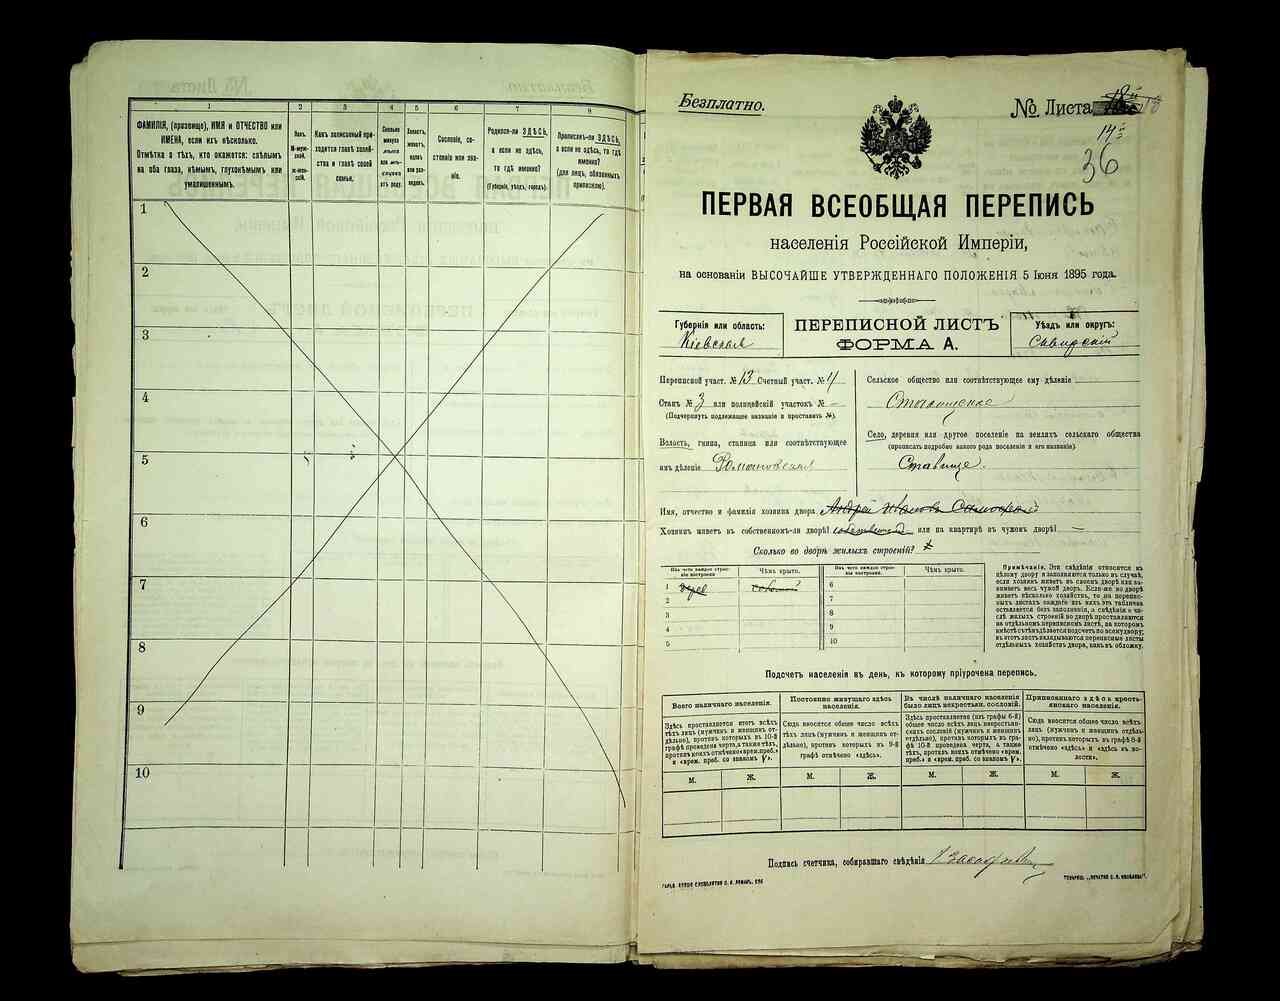 1 2 3 4 5 6 7 8
ФАМИЛІЯ, (прозвище), ИМЯ и ОТЧЕСТВО или
ИМЕНА, если ихъ нѣсколько.
Отмѣтка о тѣхъ, кто окажется: слѣпымъ
на оба глаза, нѣмымъ, глухонѣмымъ или
умалишеннымъ.
Полъ.
М-муж-
ской.
ж-жен-
скій.
Какъ записанный при-
ходится главѣ хозяй-
ства и главѣ своей
семьи.
Сколько
минуло
лѣтъ
или мѣ-
сяцевъ
отъ роду.
Холостъ,
женатъ,
вдовъ
или раз-
веденъ.
Сословіе, со-
стояніе или зва-
ніе.
Родился-ли ЗДѢСЬ,
а если не здѣсь,
то гдѣ именно?
(Губернія, уѣздъ, городъ).
Приписанъ-ли ЗДѢСЬ,
а если не здѣсь, то гдѣ
именно?
(для лицъ, обязанныхъ
припиской).
1
2
3
4
5
6
7
8
9
10
Безплатно.
№ Листа
36
ПЕРВАЯ ВСЕОБЩАЯ ПЕРЕПИСЬ
населенія Россійской Имперіи,
на основаніи ВЫСОЧАЙШЕ УТВЕРЖДЕННАГО ПОЛОЖЕНІЯ 5 Іюня 1895 года.
Губернія или область:
Кіевская
ПЕРЕПИСНОЙ ЛИСТЪ
ФОРМА А.
Уѣздъ или округъ:
Сквирскій
Переписной участ. № 13 Счетный участ. № 4
Станъ № 3 или полицейскій участокъ № —
(Подчеркнуть подлежащее названіе и проставить №).
Волость, гмина, станица или соотвѣтствующее
имъ дѣленіе Романовская
Сельское общество или соотвѣтствующее ему дѣленіе
Село, деревня или другое поселеніе на земляхъ сельскаго общества
(прописать подробно какого рода поселеніе и его названіе).
Ставище.
Имя, отчество и фамилія хозяина двора Андрей Иванов
Хозяинъ живетъ въ собственномъ-ли дворѣ? или на квартирѣ въ чужомъ дворѣ? —
Сколько во дворѣ жилыхъ строеній?
Изъ чего каждое строе-
ніе построено
Чѣмъ крыто.
Изъ чего каждое строе-
ніе построено.
Чѣмъ крыто.
1 6
2 7
3 8
4 9
5 10
Примѣчаніе. Эти свѣдѣнія относятся къ
цѣлому двору и заполняются только въ случаѣ,
если хозяинъ живетъ въ своемъ дворѣ или за-
нимаетъ весь чужой дворъ. Если-же во дворѣ
живетъ нѣсколько хозяйствъ, то на переписн-
ныхъ листахъ каждаго изъ нихъ эта табличка
оставляется безъ заполненія, а свѣдѣнія о чи-
слѣ жилыхъ строеній во дворѣ проставляются
на отдѣльномъ переписномъ листѣ, на которомъ
вмѣстѣ съ тѣмъ дѣлается подсчетъ по всему двору;
въ этотъ листъ вкладываются переписные листы
отдѣльныхъ хозяйствъ двора, какъ въ обложку.
Подсчетъ населенія въ день, къ которому пріурочена перепись.
Всего наличнаго населенія.
Здѣсь проставляется итогъ всѣхъ
тѣхъ лицъ (мужчинъ и женщинъ от-
дѣльно), противъ которыхъ въ 10-й
графѣ проведена черта, а также тѣхъ,
противъ коихъ отмѣчено «врем. преб.»
и «врем. преб. со знакомъ V».
Постоянно живущаго здѣсь
населенія.
Сюда вносится общее число всѣхъ
тѣхъ лицъ (мужчинъ и женщинъ от-
дѣльно), противъ которыхъ въ 9-й
графѣ отмѣчено «здѣсь».
Въ числѣ наличнаго населенія
было лицъ некрестьян. сословій.
Здѣсь проставляется (изъ графы 6-й)
общее число всѣхъ лицъ некрестьян-
скихъ сословій (мужчинъ и женщинъ
отдѣльно), противъ которыхъ въ гра-
фѣ 10-й проведена черта, а также
тѣхъ, противъ коихъ отмѣчено «врем.
преб.» и «врем. преб. со знакомъ V».
Приписаннаго здѣсь кресть-
янскаго населенія.
Сюда вносится общее число всѣхъ
лицъ (мужчинъ и женщинъ отдѣль-
но), противъ которыхъ въ графѣ 8-й
отмѣчено «здѣсь» и «здѣсь въ во-
лости».
М. Ж. М. Ж. М. Ж. М. Ж.
Подпись счетчика, собиравшаго свѣдѣнія